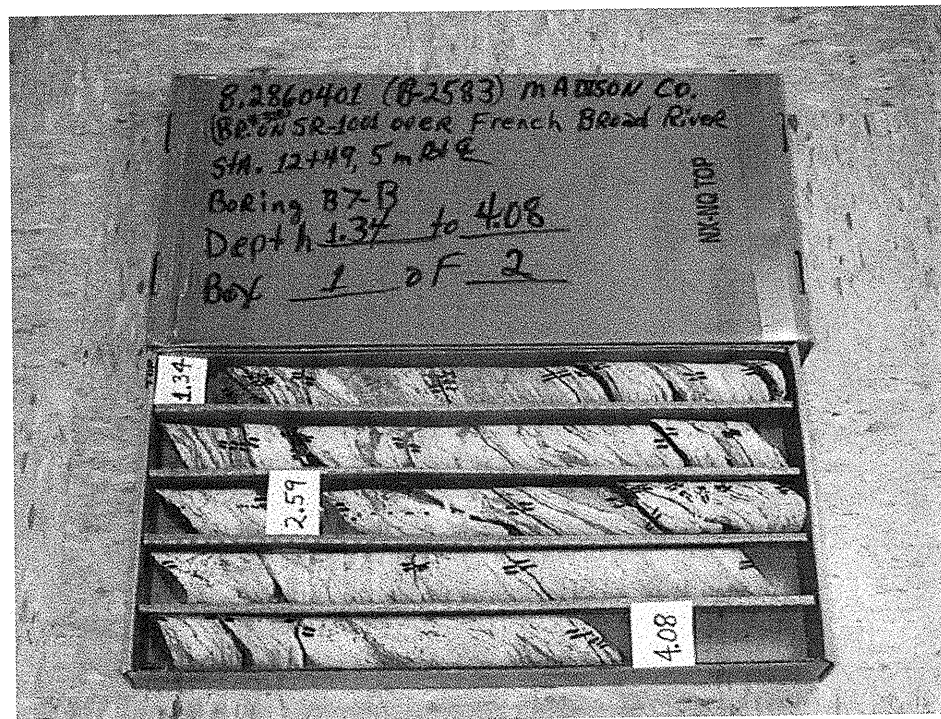 8.2860401 (B-2583) MADISON CO.
(BR. ON SR-1001 over French Broad River
STA. 12+49, 5m Rt ℄
Boring B7-B
Depth 1.34 to 4.08
Box 1 of 2
NX-NQ TOP
1.34
2.59
4.08